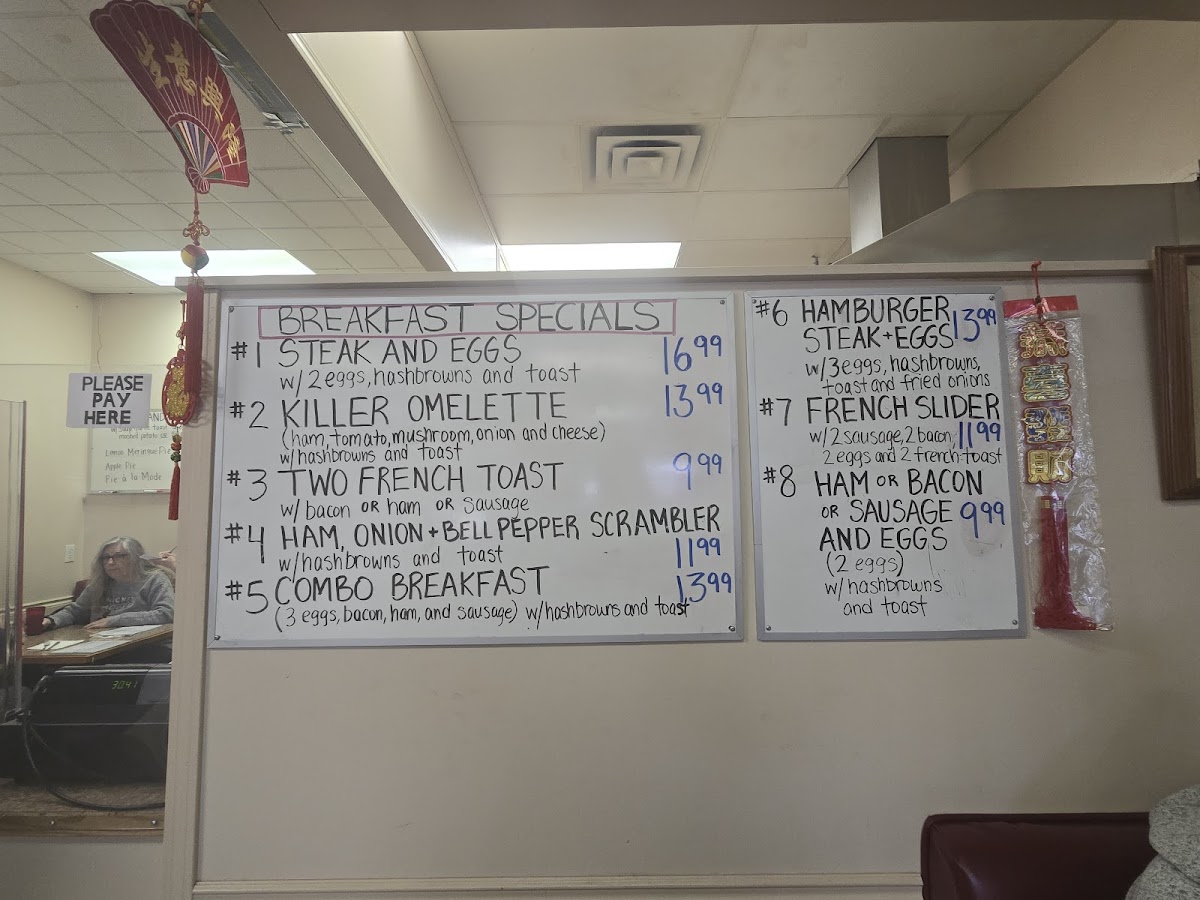 生意興隆
PLEASE
PAY
HERE
mashed potato
Lemon Meringue Pie
Apple Pie
Pie à la Mode
3041
BREAKFAST SPECIALS
#1 STEAK AND EGGS 16.99
w/ 2 eggs, hashbrowns and toast
#2 KILLER OMELETTE 13.99
(ham, tomato, mushroom, onion and cheese)
w/ hashbrowns and toast
#3 TWO FRENCH TOAST 9.99
w/ bacon OR ham OR sausage
#4 HAM, ONION + BELL PEPPER SCRAMBLER
w/ hashbrowns and toast 11.99
#5 COMBO BREAKFAST 13.99
(3 eggs, bacon, ham, and sausage) w/ hashbrowns and toast
#6 HAMBURGER
STEAK + EGGS 13.99
w/ 3 eggs, hashbrowns,
toast and fried onions
#7 FRENCH SLIDER
w/ 2 sausage, 2 bacon, 11.99
2 eggs and 2 french toast
#8 HAM OR BACON
OR SAUSAGE 9.99
AND EGGS
(2 eggs)
w/ hashbrowns
and toast